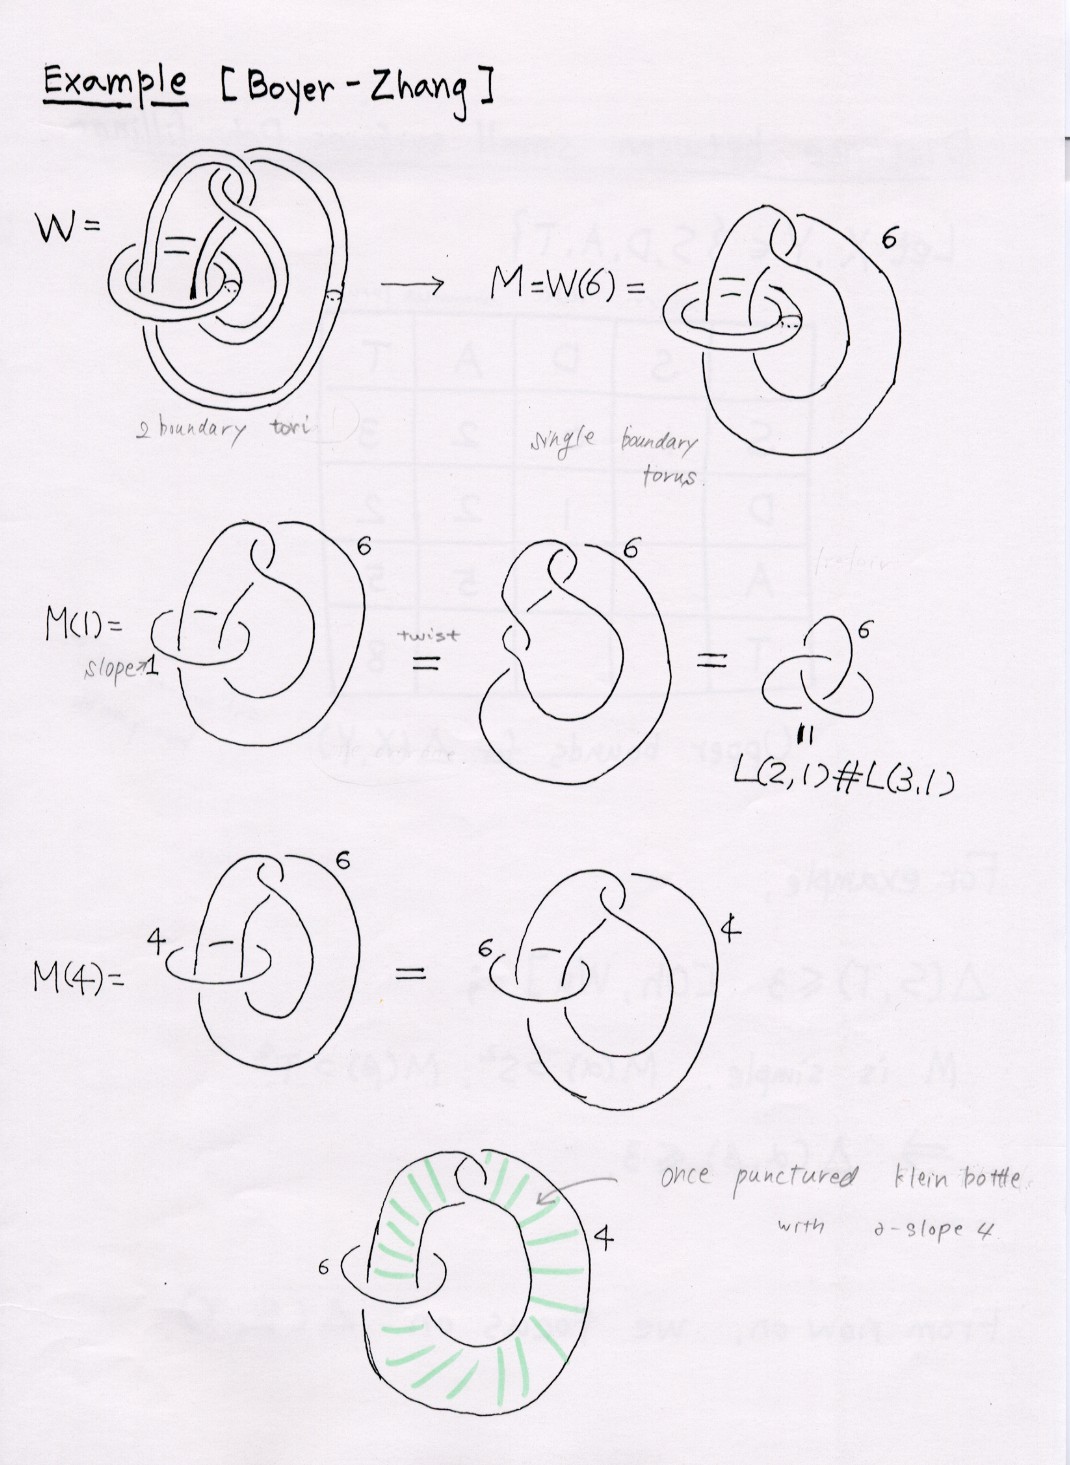 Example [Boyer-Zhang]
W =
M=W(6) =
6
2 boundary tori
single boundary
torus.
M(1)=
slope 1
6
twist
=
6
=
6
=
L(2,1)#L(3,1)
M(4)=
4
6
=
6
4
once punctured klein bottle
with ∂-slope 4
6
4